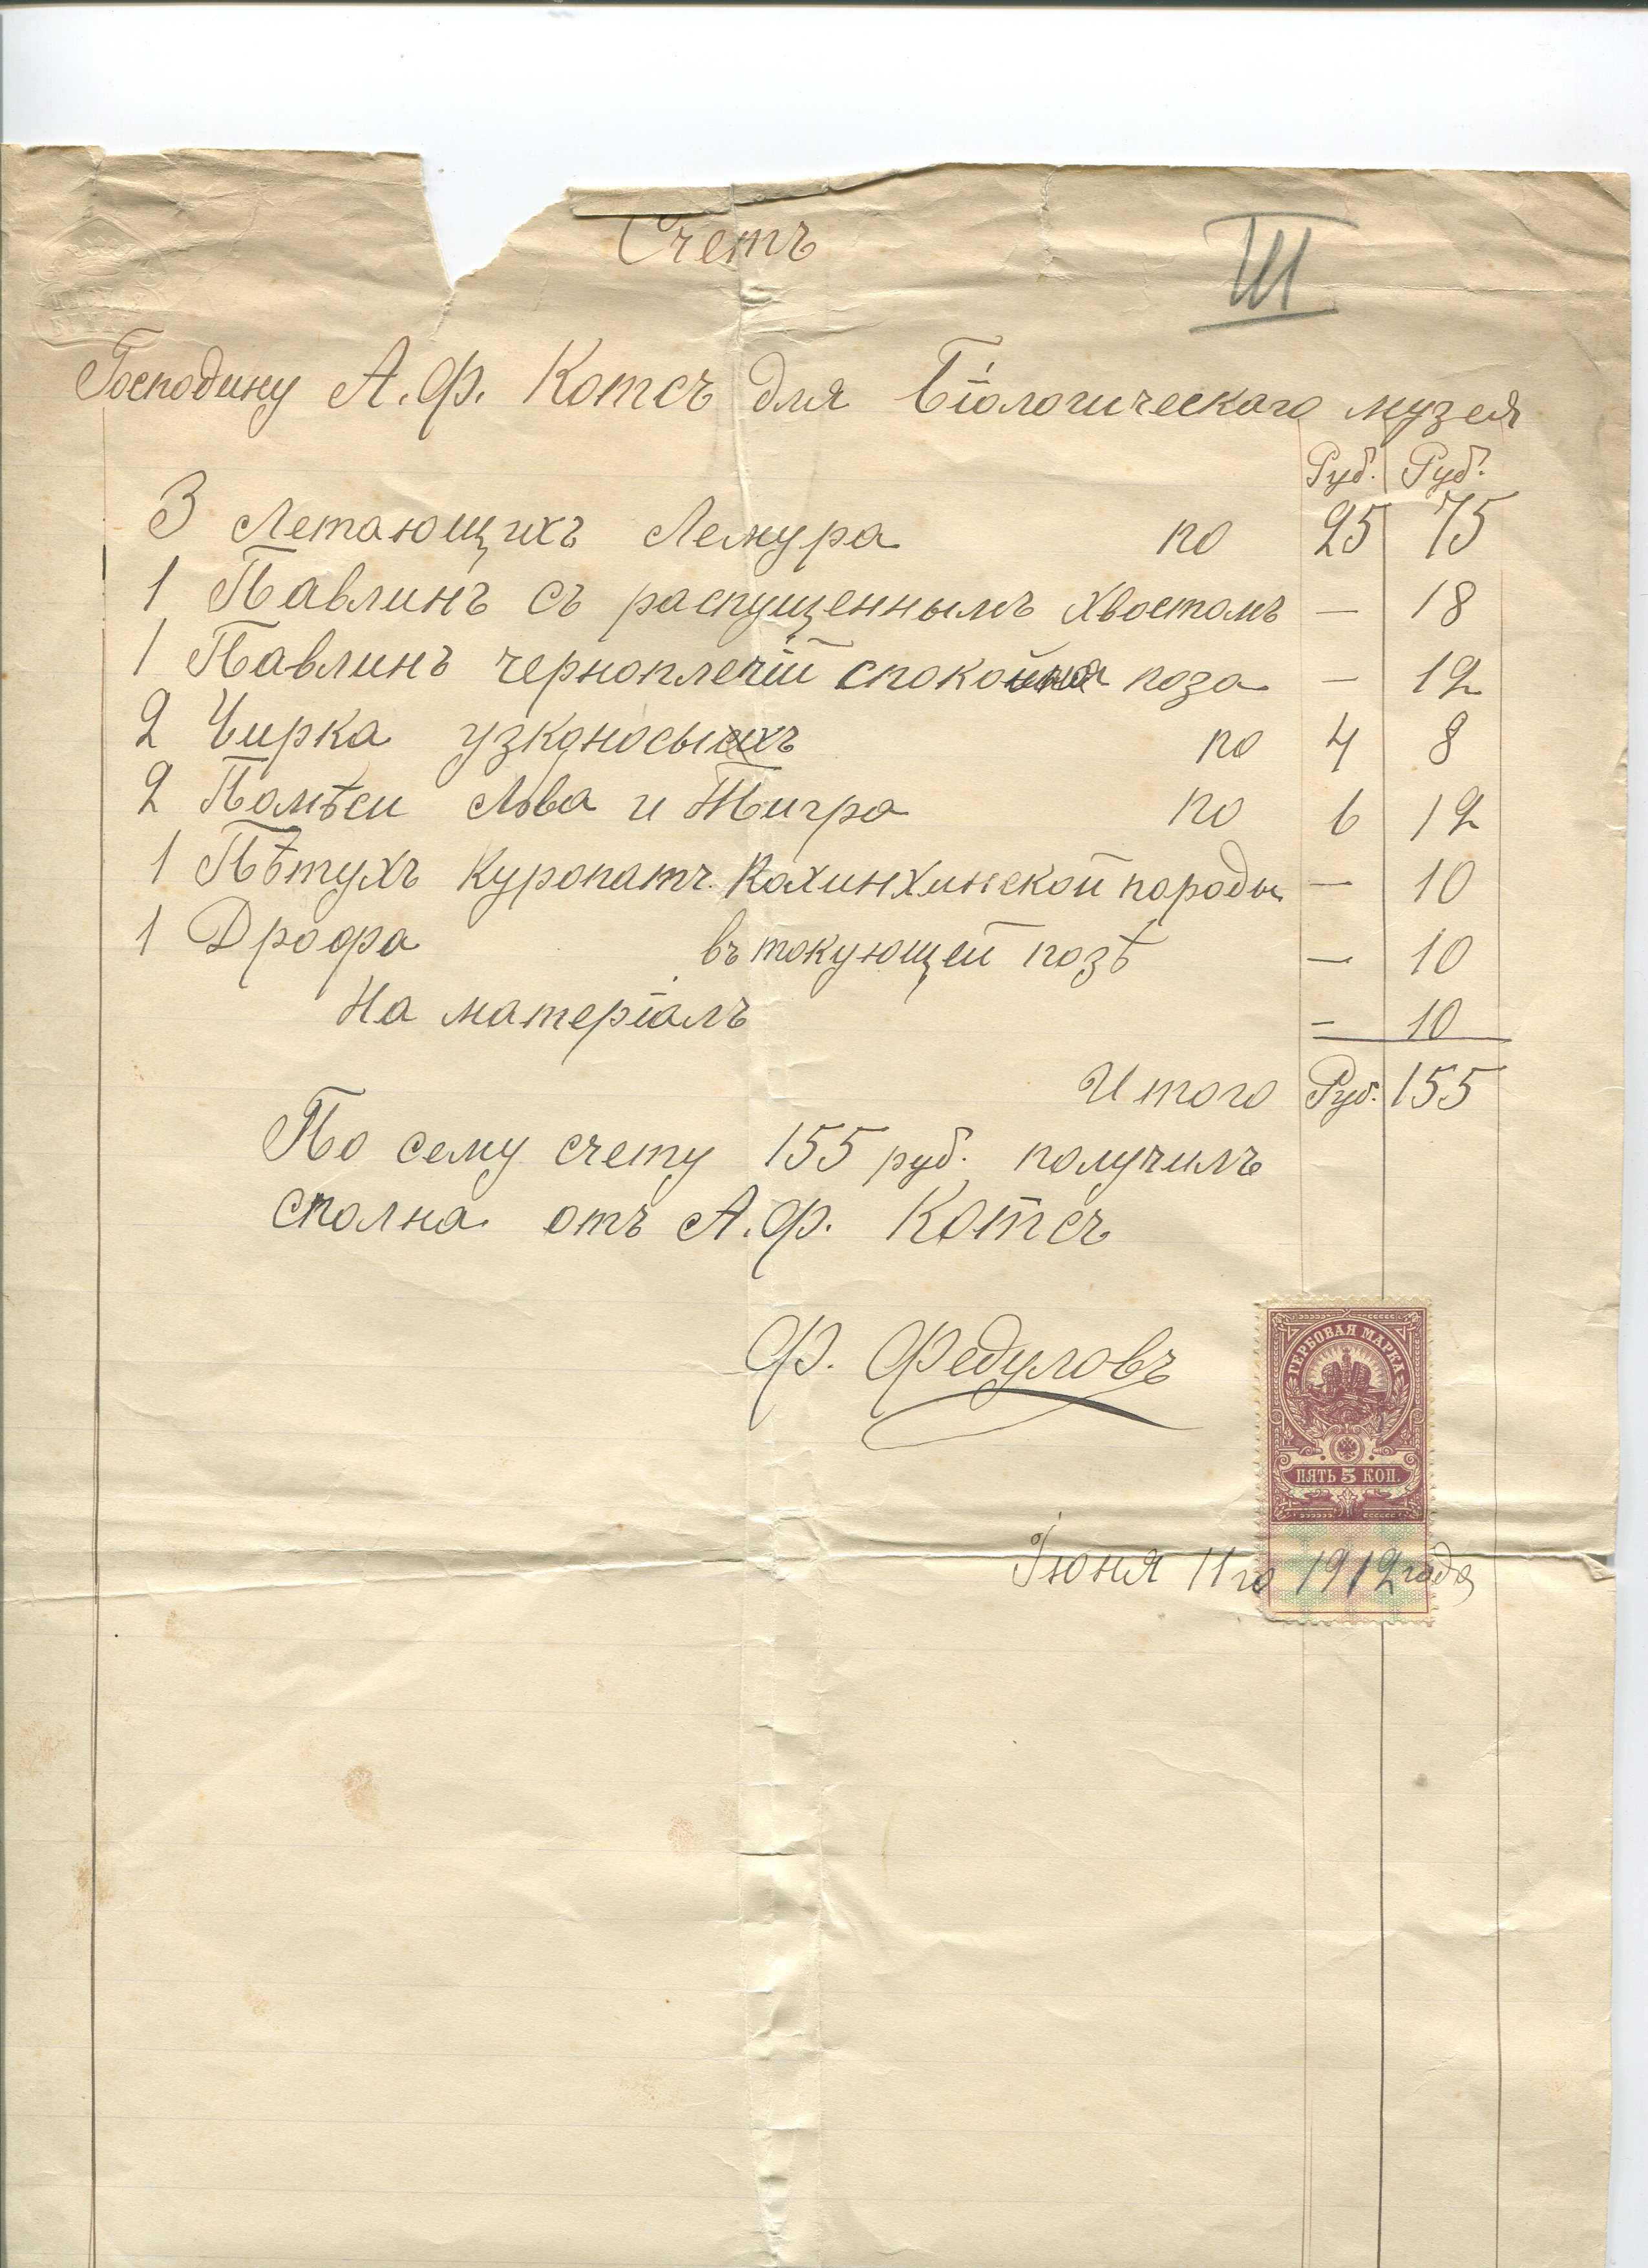 Счетъ
III
Господину А. Ф. Котсъ для Біологическаго музея
Руб. Руб.
3 Летающихъ Лемура по 25 75
1 Павлинъ съ распущеннымъ хвостомъ — 18
1 Павлинъ черноплечій спокойная поза — 12
2 Чирка узконосыхъ по 4 8
2 Помѣси Льва и Тигра по 6 12
1 Пѣтухъ Куропатч. Кохинхинской породы — 10
1 Дрофа въ токующей позѣ — 10
На матеріалъ — 10
Итого Руб. 155
По сему счету 155 руб. получилъ
сполна отъ А. Ф. Котсъ
Ф. Федуловъ
ГЕРБОВАЯ МАРКА
ПЯТЬ 5 КОП.
Іюня 11го 1912 года